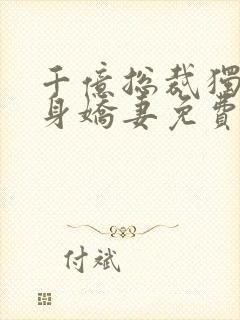 千億總裁獨
身嬌妻免費
付斌